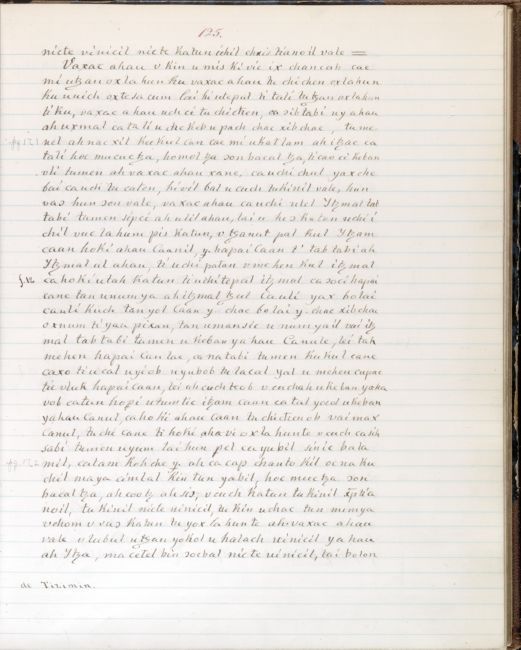 125.
nicte vinicil nicte katun ichil christianoil vale =
Vaxac ahau u kin u mis ki vic ix chancab cac
mi utzan oxlahun ku vaxac ahau te chichen oxlahun
ku uich oxtesacum
ti ku, vaxac ahau uchci tu chichen, ca sibtabi uy ahau
ah uxmal ca tali u chekeb u pach chac xib chac, tu me
nel ah nac xit kukul can cac mi ukutlam ah itzac ca
tali hoc mucuctza, homoltza son bacal tza, ti cao ci keban
vli tumen ah vaxac ahau xane, cauchi chul yax che
bai cauch tu caten, he vil bal u cuch tu kinil vale, hun
vas hun son vale, vaxac ahau cauchi ulel Ytzmal tab
tabi tumen sipci ah ulil ahau, lai u hes katun uchi i
chil vuc lahun pis katun, u tzanut pal kul Ytzam
caan hoki ahau Caanil, y. hapai Caan t' tab tabi ah
Ytzmal ul ahau, ti uchi patan u mehen kul itzmal
ca hoki utah katun ti uchi tepal itzmal ca soci hapai
cane tan unum ya ah itzmal tzul Cauli yax bolai
cauli kuch tan yol Caan y. chac bolai y. chac xib chac
ox num ti yaa pixan, tan umansic u numyail vai itz
mal tab tabi tumen u keban ya hau Canule, lei tah
mehen hapai Can lae, ca na tabi tumen kukul cane
caxo ti ucal uyiob. u yubob tu lacal yal u mehen cupac
tie vluk hapai Caan, lei ah cuchteob u cuchah u keban yoka
vob catun hopi utuntic itzam caan ca tal ycol u keban
yahau Canul, ca hoki ahau Caan tu chichen ob vaimax
Canul, tu chi cane ti hoki aha vi oxlahunte u cuch cas in
sabi tumen uyum lai hun pel ca yubil sinic bala
mil, catam Kohche y. ah ca cap chanto kil oc na ku
chil maya cimbal kin tun yabil, hoc muctza, son
bacaltza, ah uootz ah sis, u cuch katun tu kinil xptia
noil, tu kinil nicte uinicil, tu kin uchac tun mimya
vchom u vas katun tu yox lahunte ah vaxac ahau
vale u lubul u tzan yokol u halach vinicil yahau
ah Ytza, ma cetel bin socbal nicte uinicil, lai bolon
de Tizimin.